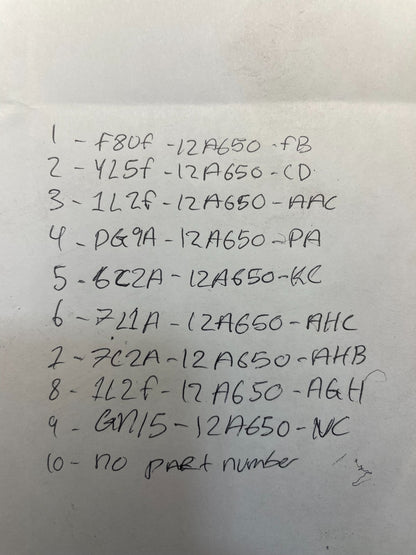 1 - F80f - 12A650 - fB
2 - YL5f - 12A650 - CD
3 - 1L2f - 12A650 - AAC
4 - DG9A - 12A650 - PA
5 - 6C2A - 12A650 - KC
6 - 7L1A - 12A650 - AHC
7 - 7C2A - 12A650 - AHB
8 - 1L2f - 12A650 - AGH
9 - GN15 - 12A650 - NC
10 - no part number